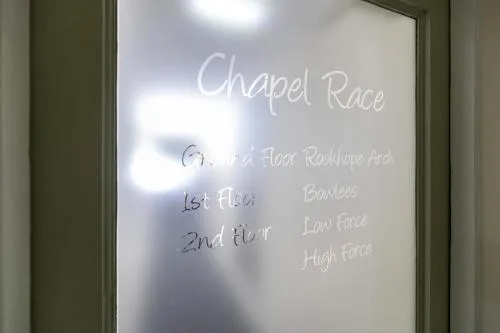 Chapel Race
Ground Floor Rookhope Arch
1st Floor Bowlees
2nd Floor Low Force
High Force